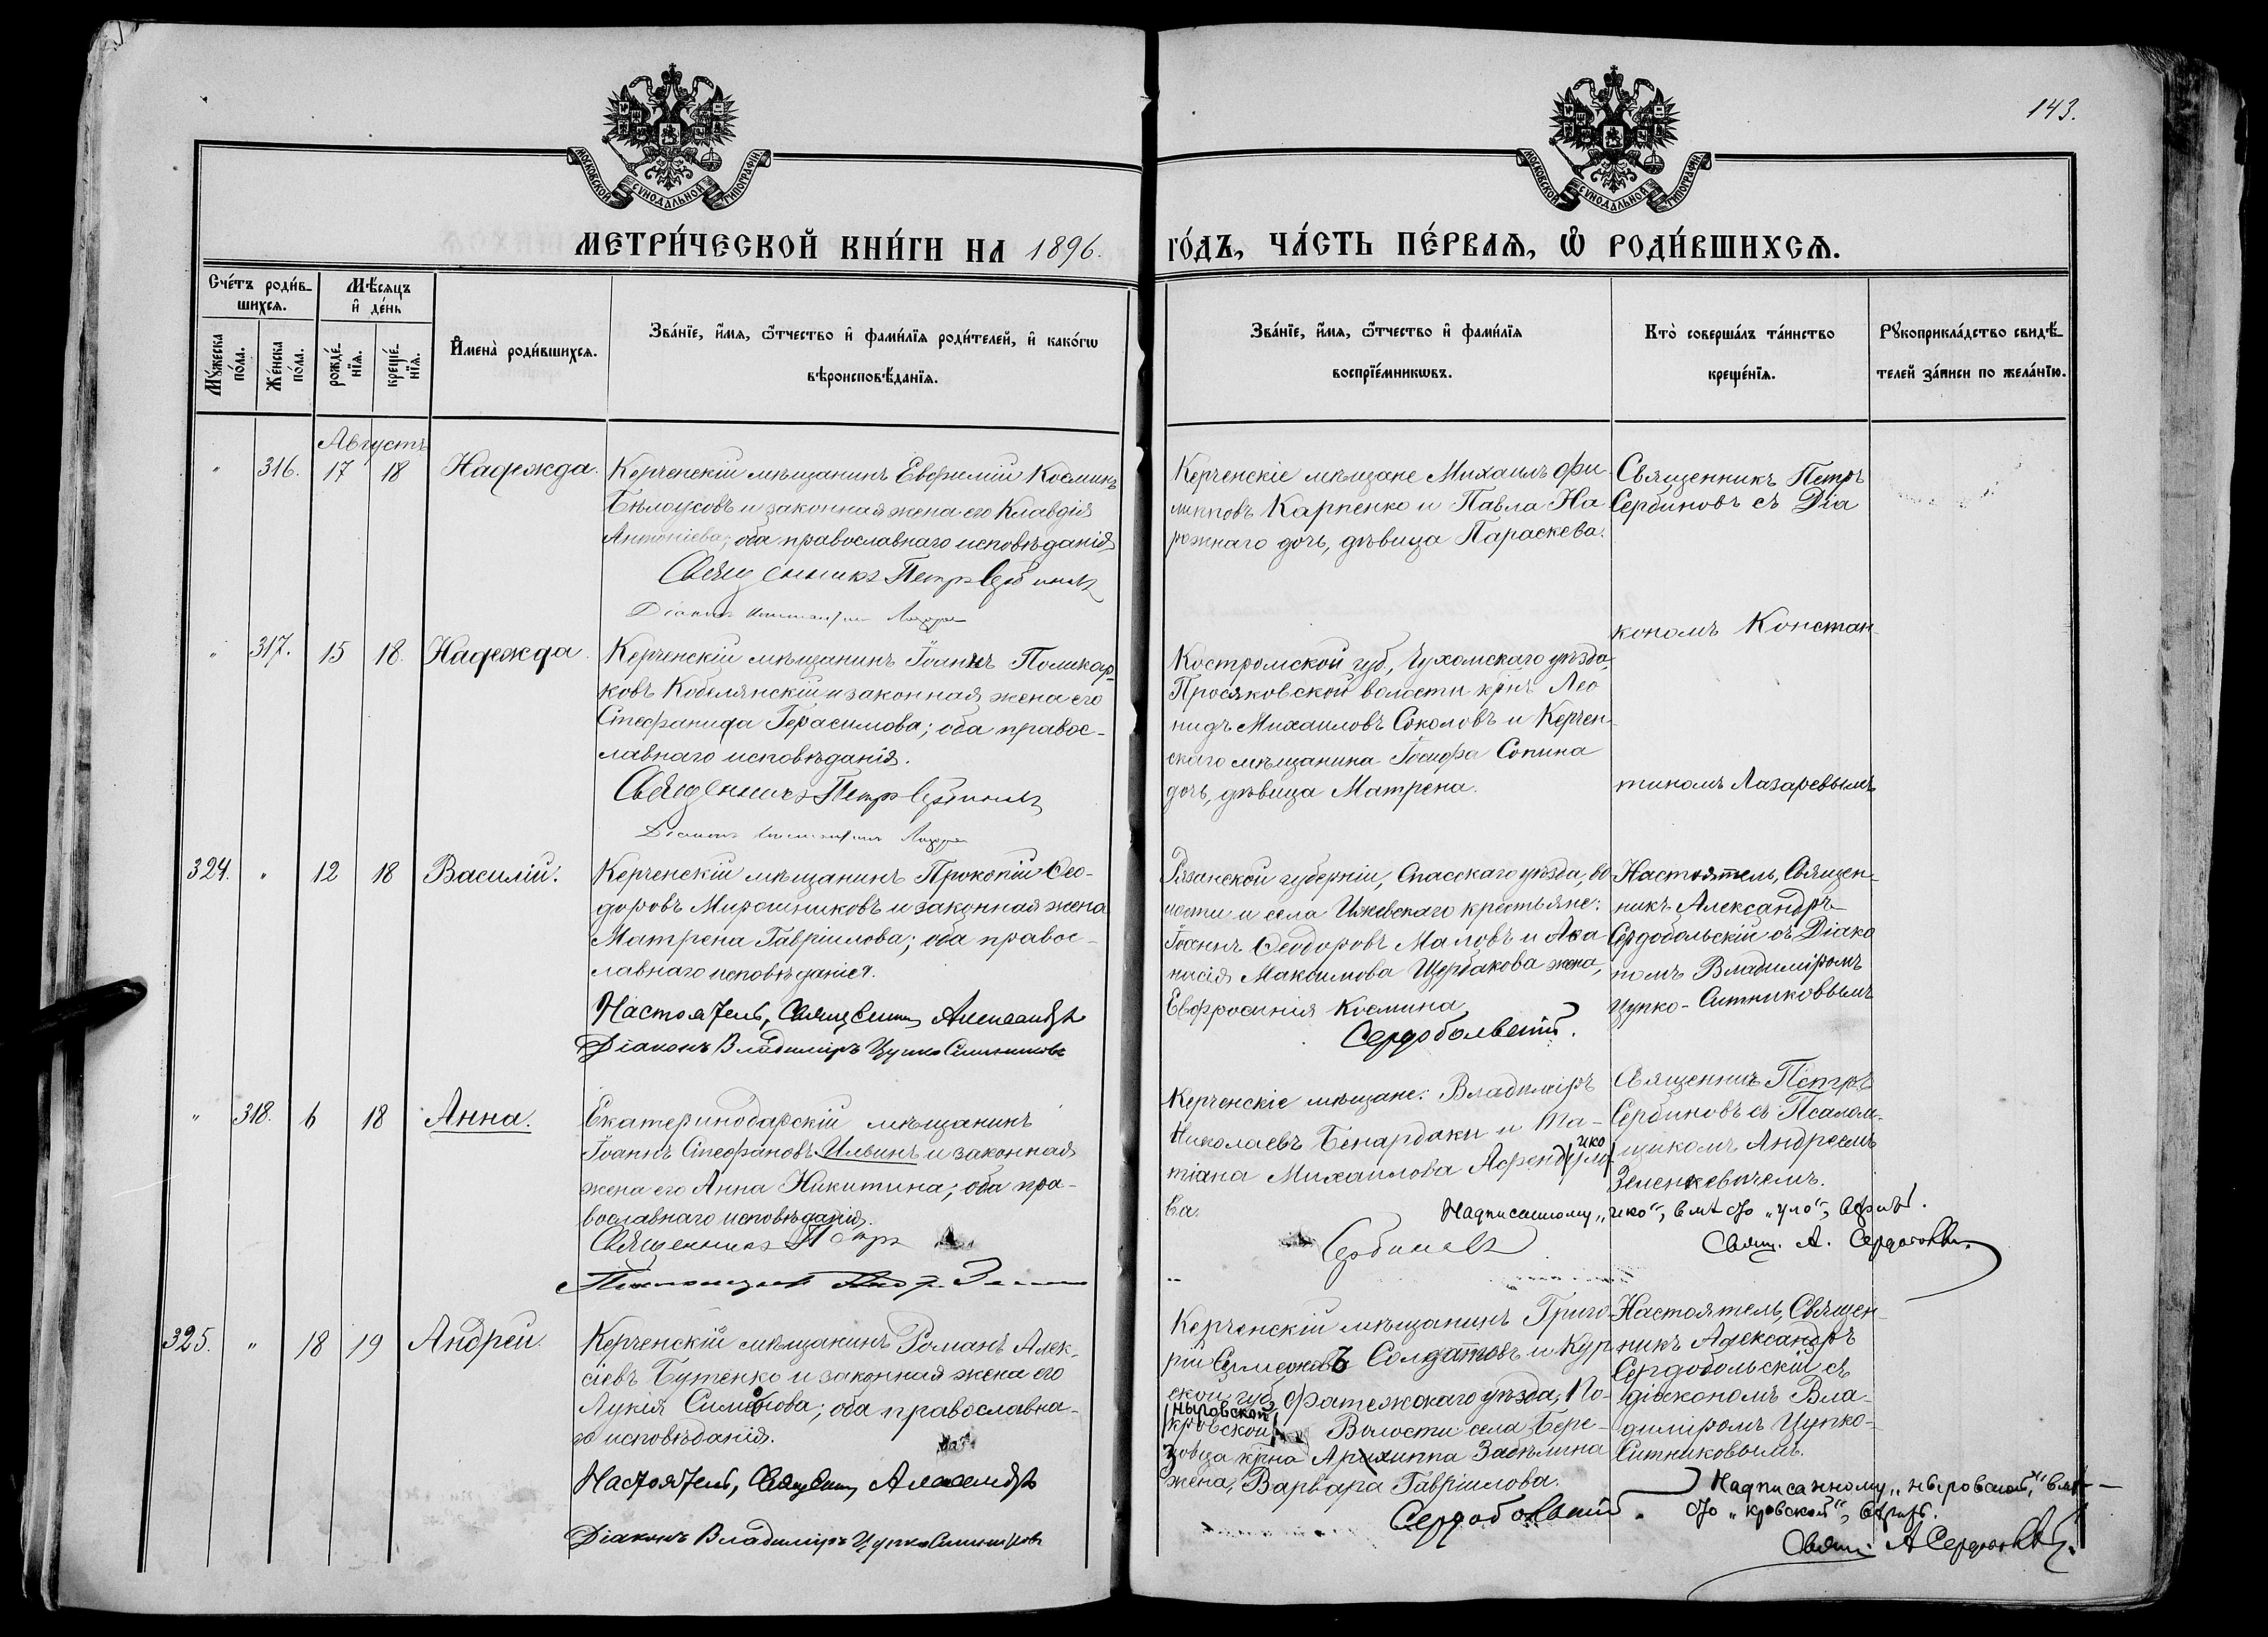 143.
МОСКОВСКОЙ СѴНОДАЛЬНОЙ ТИПОГРАФІИ
МОСКОВСКОЙ СѴНОДАЛЬНОЙ ТИПОГРАФІИ
МЕТРИ́ЧЕСКОЙ КНИ́ГИ НА 1896.
ГО́ДЪ, ЧА́СТЬ ПЕ́РВАѦ, Ѽ РОДИ́ВШИХСѦ.
Сче́тъ роди́в-
шихсѧ.
Мѣ́сяцъ
и҆ де́нь
Мꙋ́жеска по́ла.
Же́нска по́ла.
рожде́-нїѧ.
креще́-нїѧ.
И҆мена̀ роди́вшихсѧ.
Зва́нїе, и҆́мѧ, ѻ҆́тчество и҆ фами́лїѧ роди́телей, и҆ како́гѡ
вѣроисповѣ́данїѧ.
Зва́нїе, и҆́мѧ, ѻ҆́тчество и҆ фами́лїѧ
воспрїе́мникѡвъ.
Кто̀ соверша́лъ та́инство
креще́нїѧ.
Рꙋкоприкла́дство свидѣ́-
телей за́писи по жела́нїю.
Августъ
" 316. 17 18 Надежда.
Керченскій мѣщанинъ Евфимій Косминъ
Бѣлоусовъ и законная жена его Клавдія
Антоніева; оба православнаго исповѣданія
Священникъ Петръ Сербиновъ
Діаконъ Константинъ Лазарев
Керченскіе мѣщане Михаилъ Фи-
липповъ Карпенко и Павла На-
рожнаго дочь, дѣвица Параскева.
Священникъ Петръ
Сербиновъ съ Діа
кономъ Констан-
тиномъ Лазаревымъ
" 317. 15 18. Надежда.
Керченскій мѣщанинъ Іоаннъ Поликар-
ковъ Кобелянскій и законная жена его
Стефанида Герасимова; оба правос-
лавнаго исповѣданія.
Священникъ Петръ Сербиновъ
Діаконъ Константинъ Лазарев
Костромской губ, Чухомскаго уѣзда,
Просяковской волости крнъ Лео
нидъ Михаиловъ Соколовъ и Керчен-
скаго мѣщанина Іосифа Сопина
дочь, дѣвица Матрена.
324. " 12 18 Василій.
Керченскій мѣщанинъ Прокопій Ѳео-
доровъ Мирошниковъ и законная жена
Матрена Гавріилова; оба правос-
лавнаго исповѣданія.
Настоятель, Священник Александръ
Діаконъ Владиміръ Цупко Ситниковъ
Рязанской губерніи, Спасскаго уѣзда, во-
лости и села Ижевскаго крестьяне:
Іоаннъ Ѳеодоровъ Маловъ и Аѳа
насія Максимова Щербакова жена,
Евфросинія Космина
Сердобольскій.
Настоятель, Священ-
никъ Александръ
Сердобольскій съ Діако
номъ Владиміромъ
Цупко-Ситниковымъ
" 318. 6 18 Анна.
Екатеринодарскій мѣщанинъ
Іоаннъ Стефановъ Ильинъ и законная
жена его Анна Никитина; оба пра-
вославнаго исповѣданія.
Священникъ Петръ
Керченскіе мѣщане: Владиміръ
Николаевъ Бенардаки и Та-
тіана Михаилова Афендуло
ико
ва.
Сербиновъ
Священникъ Петръ
Сербиновъ съ Псалом-
щикомъ Андреемъ
Зеленкевичемъ.
Надписанному „ико", вмѣсто „уло",
Свящ. А. Сердобольск
325. " 18 19 Андрей.
Керченскій мѣщанинъ Романъ Алек-
сіевъ Бутенко и законная жена его
Лукія Симонова; оба православна-
го исповѣданія.
Настоятель, Священник Александръ
Діаконъ Владиміръ Цупко Ситниковъ
Керченскій мѣщанинъ Григо-
рій Симеоновъ Солдатовъ и Кур
ской губ, Фатежскаго уѣзда, По-
ныровской
кровской Волости села Бере-
зовца крна Архиппа Заѣлина
жена, Варвара Гавріилова.
Сердобольскій.
Настоятель, Священ-
никъ Александръ
Сердобольскій съ
діакономъ Вла-
диміромъ Цупко-
Ситниковымъ.
Надписанному „ныровской", вмѣ-
сто „кровской",
Свящ. А Сердобольск